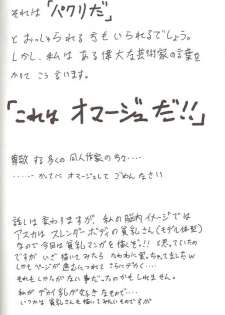 それは「パクリだ」
とおっしゃられる方もいられるでしょう。
しかし、私はある偉大な芸術家の言葉を
かりてこう言います。
「これは オマージュだ!!」
尊敬する多くの同人作家の方々‥‥
‥‥‥かってにオマージュして ごめんなさい
話しは変わりますが、私の脳内イメージでは
アスカはスレンダーボディの貧乳さん(モデル体型)
なので今回は貧乳マンガを描くぞ!!と思っていたの
ですが いざ描いてみたら たわわに実っちゃてました
しかもページが進むにつれてさらにデカく‥‥
それもしかたがないことだったのかもしれません。
私がデカイ乳が大好きなもので‥‥
いつかは貧乳さんも描いてみたいものですが